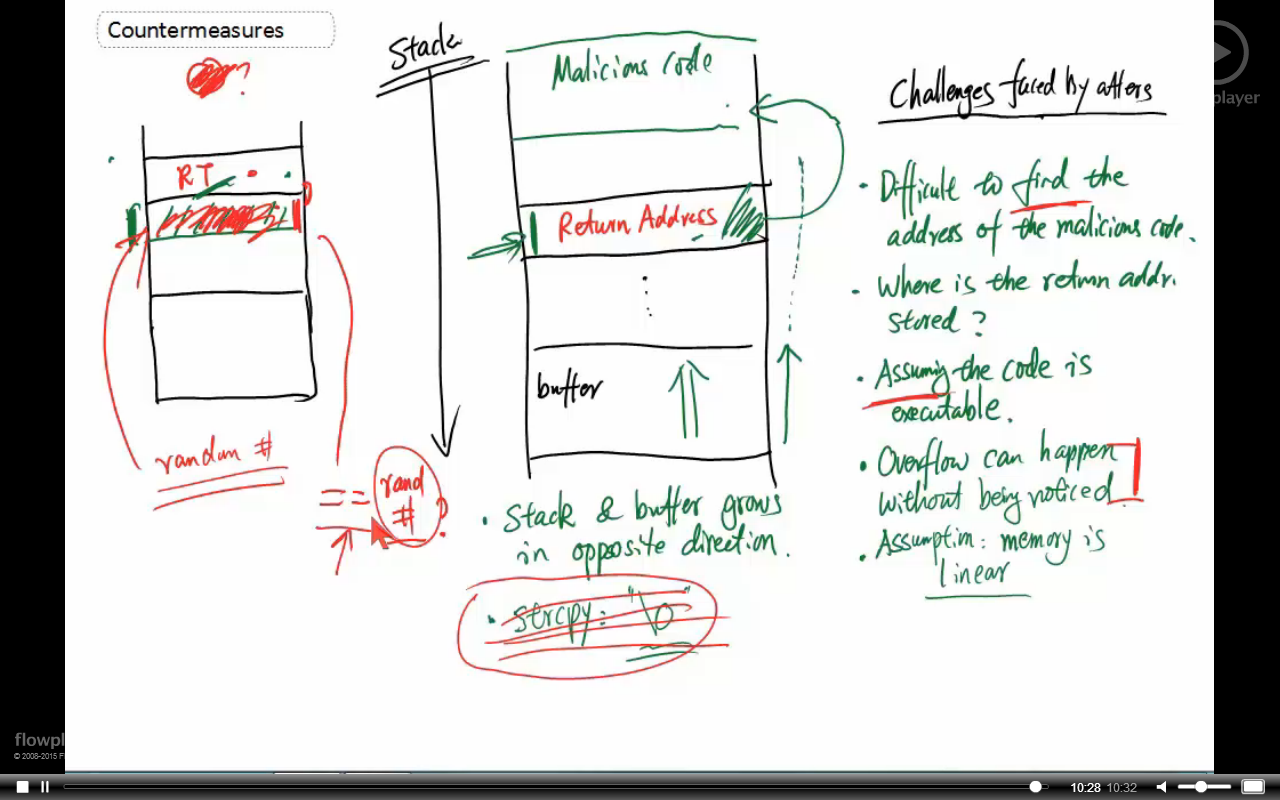 Countermeasures
?
RT
random #
== rand
#
?
Stack
Malicious code
Return Address
buffer
• Stack & buffer grows
in opposite direction.
• strcpy: "\0"
Challenges faced by atters
• Difficult to find the
address of the malicious code.
• Where is the return addr.
stored?
• Assuming the code is
executable.
• Overflow can happen
without being noticed
• Assumption: memory is
linear
player
flowpl
© 2008-2015 Fl
10:28 10:32